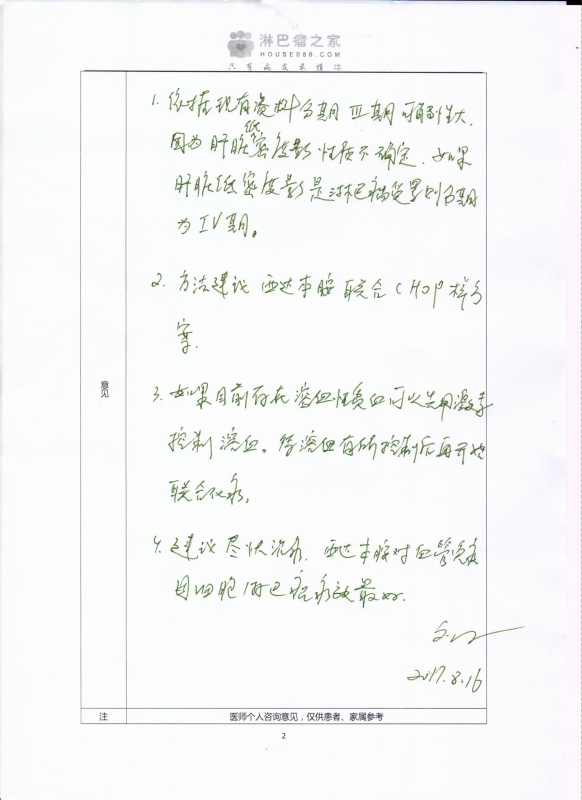 淋巴瘤之家
HOUSE086.COM
只有病友最懂你
1. 依据现有资料分期 III期可能性大.
因为肝脏低密度影性质不确定. 如果
肝脏低密度影是淋巴瘤受累则分期
为IV期。
2. 方法建议 西达本胺 联合CHOP样方
案.
意见
3. 如果目前存在溶血性贫血可以先用激素
控制溶血。待溶血有所控制后再开始
联合化疗.
4. 建议尽快治疗. 西达本胺对血管免疫
母细胞淋巴瘤疗效最好.
2017.8.16
注
医师个人咨询意见，仅供患者、家属参考
2